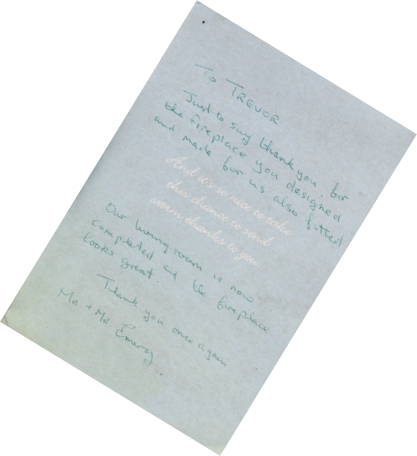 To TREVOR
Just to say thankyou for
the fireplace you designed
and made for us also fitted
And it's so nice to take
this chance to send
warm thanks to you
Our living room is now
completed and the fireplace
looks great.
Thank you once again
Mr + Mrs Emery.